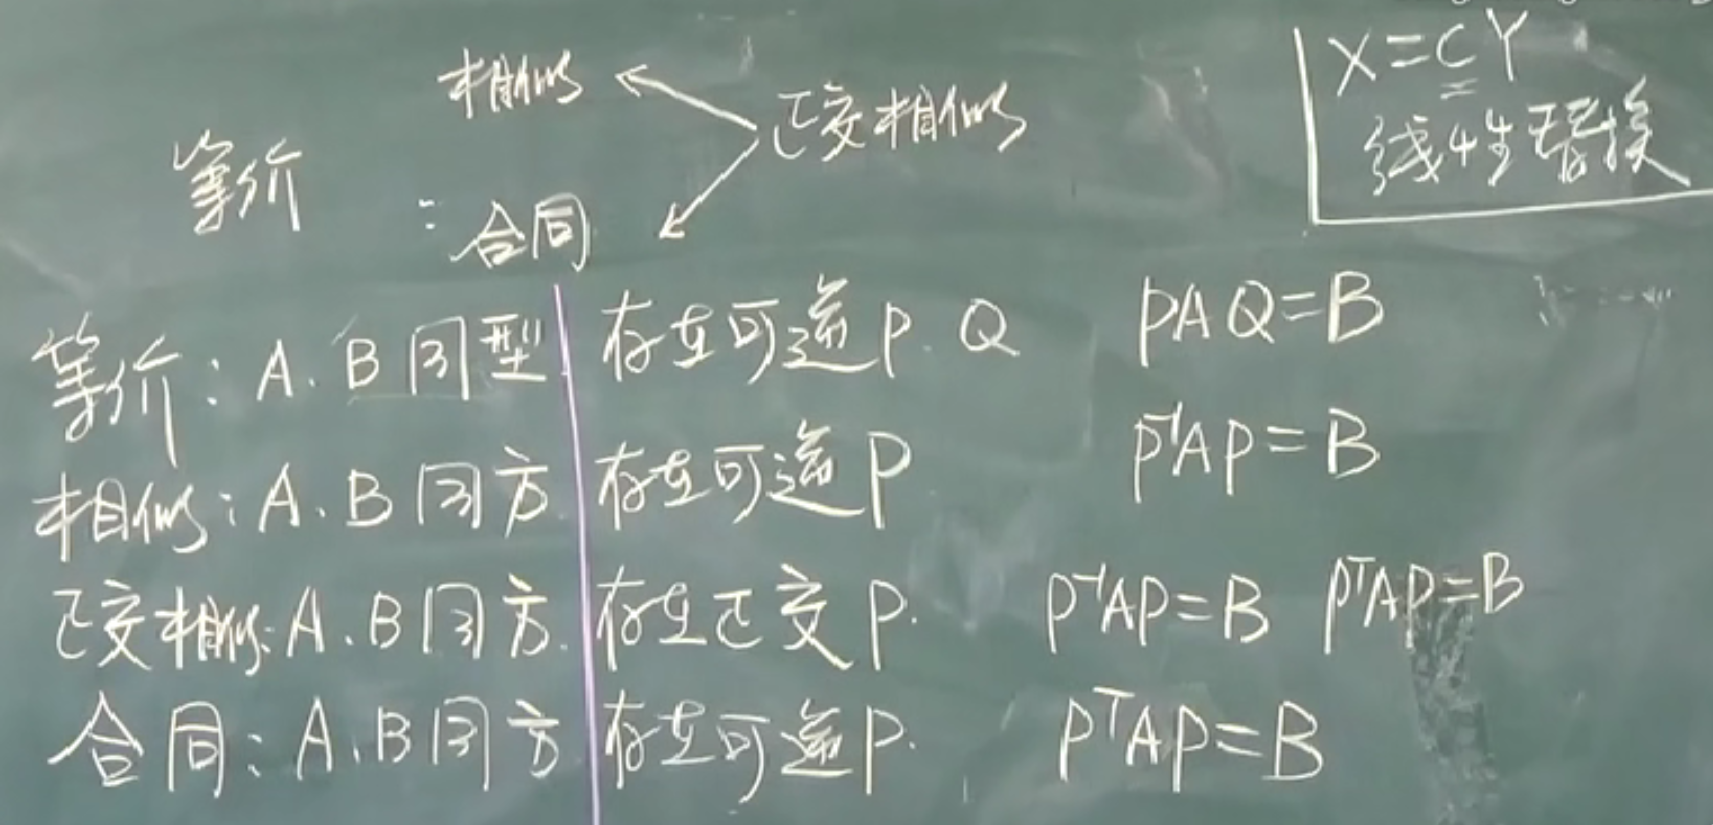 相似 正交相似
等价
: 合同
X=CY
线性替换
等价: A.B同型 存在可逆P.Q PAQ=B
相似: A.B同方 存在可逆P P⁻¹AP=B
正交相似: A.B同方. 存在正交P. P⁻¹AP=B PᵀAP=B
合同: A.B同方 存在可逆P. PᵀAP=B